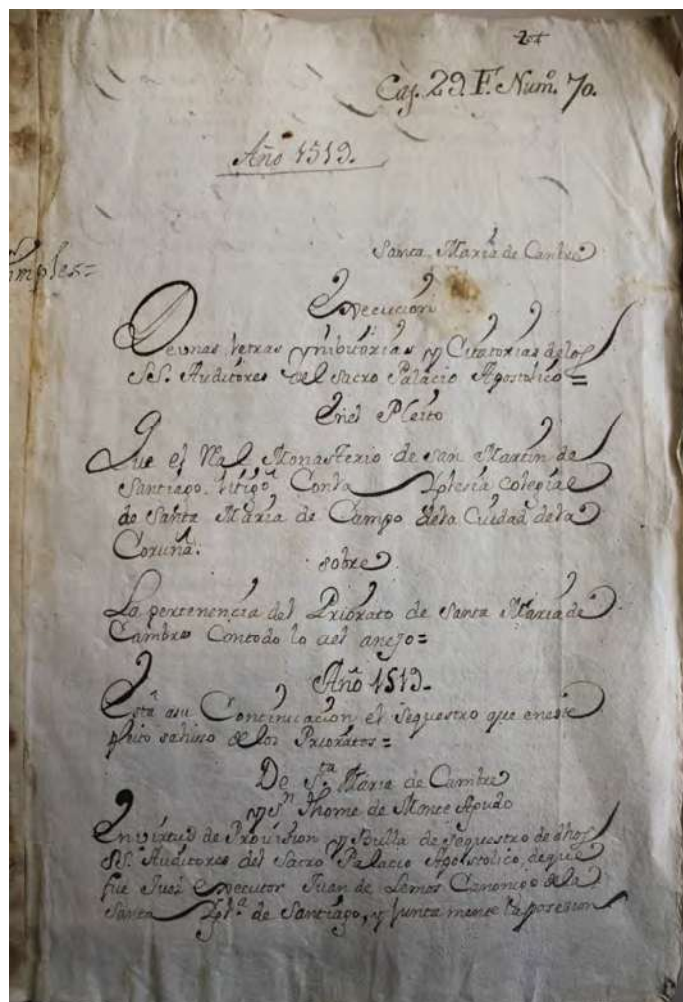 Caj. 29. F. Num.º 70.
Año 1519.
Santa Maria de Cambre
Simples=
Execucion
De unas letras Ynibitorias y Citatorias de los
SS. Auditores del Sacro Palacio Apostolico=
En el Pleito
Que el Rl. Monasterio de San Martin de
Santiago litigó Conla Yglesia Colegial
de Santa Maria de Campo dela Ciudad dela
Coruña:
sobre
La pertenencia del Priorato de Santa Maria de
Cambre Contodo lo ael anejo=
Año 1519.
Está asu Continuacion el Sequestro que eneste
pleito sehizo de los Prioratos=
De Sta. Maria de Cambre
y Sn. Thome de Monte Agudo
En virtud de Provision y Bulla de sequestro de dhos
SS. Auditores del Sacro Palacio Apostolico, deque
fue Juez Executor Juan de Lemos Canonigo dela
Santa Yglª. de Santiago, y junta mente la posesion